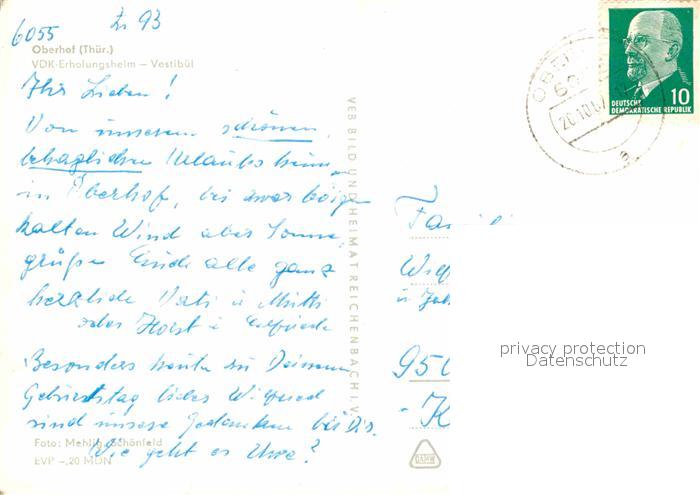 6055 Zi 93
Oberhof (Thür.)
VDK-Erholungsheim – Vestibül
Ihr Lieben!
Von unserem schönen,
behaglichen Urlaubsheim
in Oberhof, bei zwar böigen
kalten Wind aber Sonne,
grüßen Euch alle ganz
herzlich Vati u Mutti
oder Horst u Elfriede
Besonders heute zu Deinem
Geburtstag liebes Wilfried
sind unsere Gedanken bei Dir.
Wie geht es Uwe?
Foto: Mehlig, Schönfeld
EVP –,20 MDN
VEB BILD UND HEIMAT REICHENBACH I.V.
DAMW
OBE
20.10.67
a
10
DEUTSCHE
DEMOKRATISCHE REPUBLIK
Fa
950
- K
privacy protection
Datenschutz